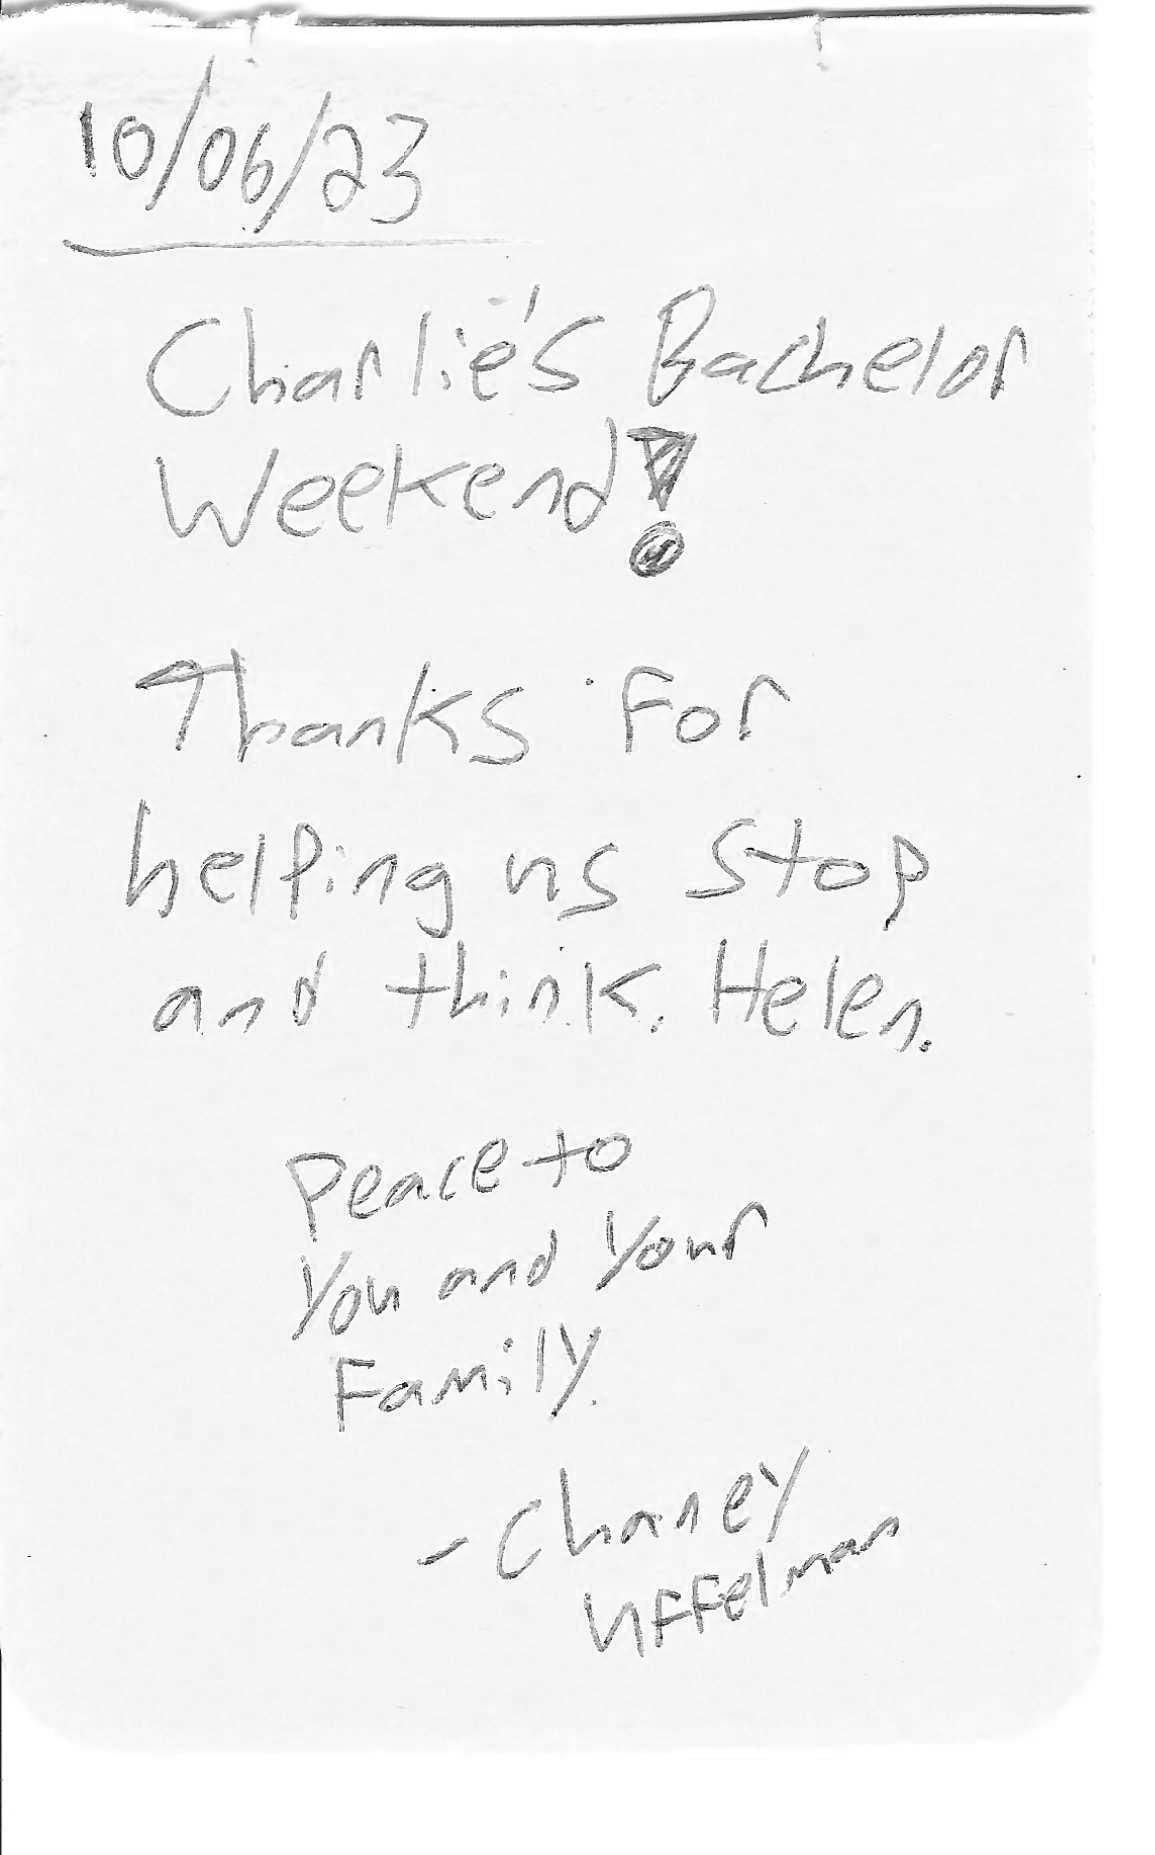 10/06/23
Charlie's Bachelor
Weekend!
Thanks For
helping us Stop
and think, Helen.
Peace to
You and Your
Family.
- Chaney
Uffelman